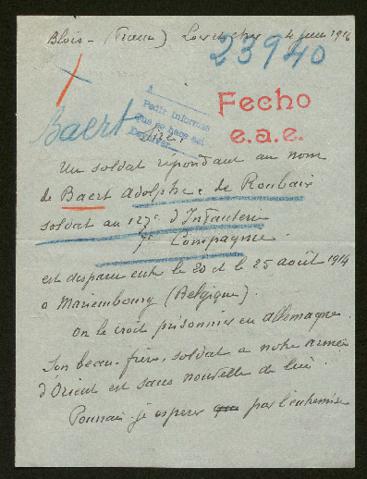 Blois - (France) Loir et Cher 4 juin 1916
23940
A
Pedir informes
Que se hace así
Fecho
e.a.e.
Baert
Sire,
Un soldat répondant au nom
de Baert Adolphe de Roubaix
soldat au 127e d'Infanterie
7e Compagnie
est disparu entre le 20 et le 25 août 1914
à Mariembourg (Belgique).
On le croit prisonnier en Allemagne.
Son beau-frère, soldat à notre armée
d'Orient est sans nouvelle de lui.
Pourrais-je espérer que par l'entremise